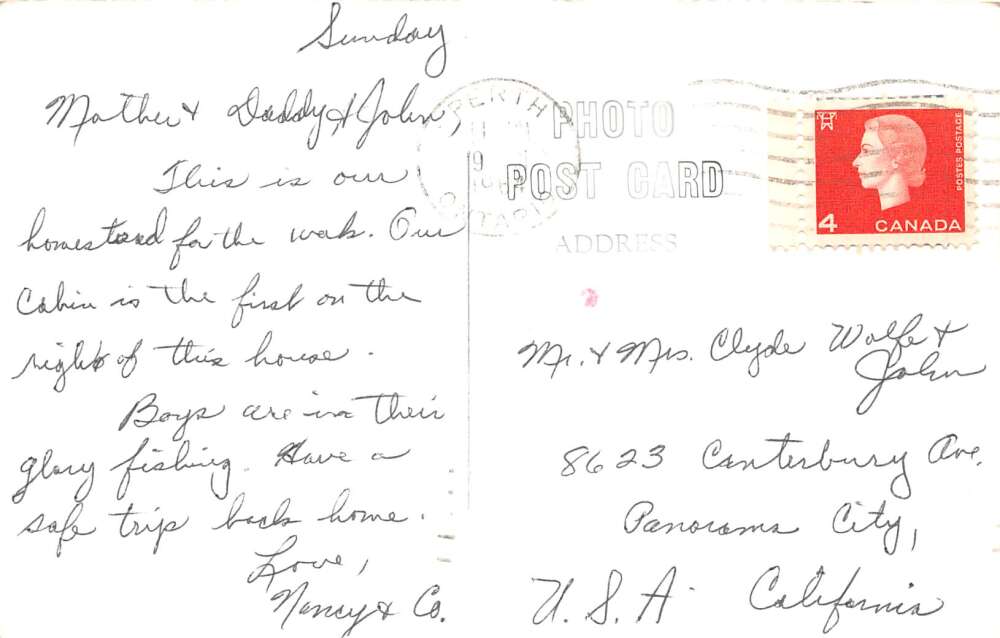 Sunday
Mother & Daddy & John,
This is our
homestead for the week. Our
Cabin is the first on the
right of this house.
Boys are in their
glory fishing. Have a
safe trip back home.
Love,
Nancy & Co.
PERTH
9
ONTARIO
PHOTO
POST CARD
ADDRESS
4
CANADA
POSTES POSTAGE
Mr. & Mrs. Clyde Wolfe &
John
8623 Canterbury Ave.
Panorama City,
U.S.A. California